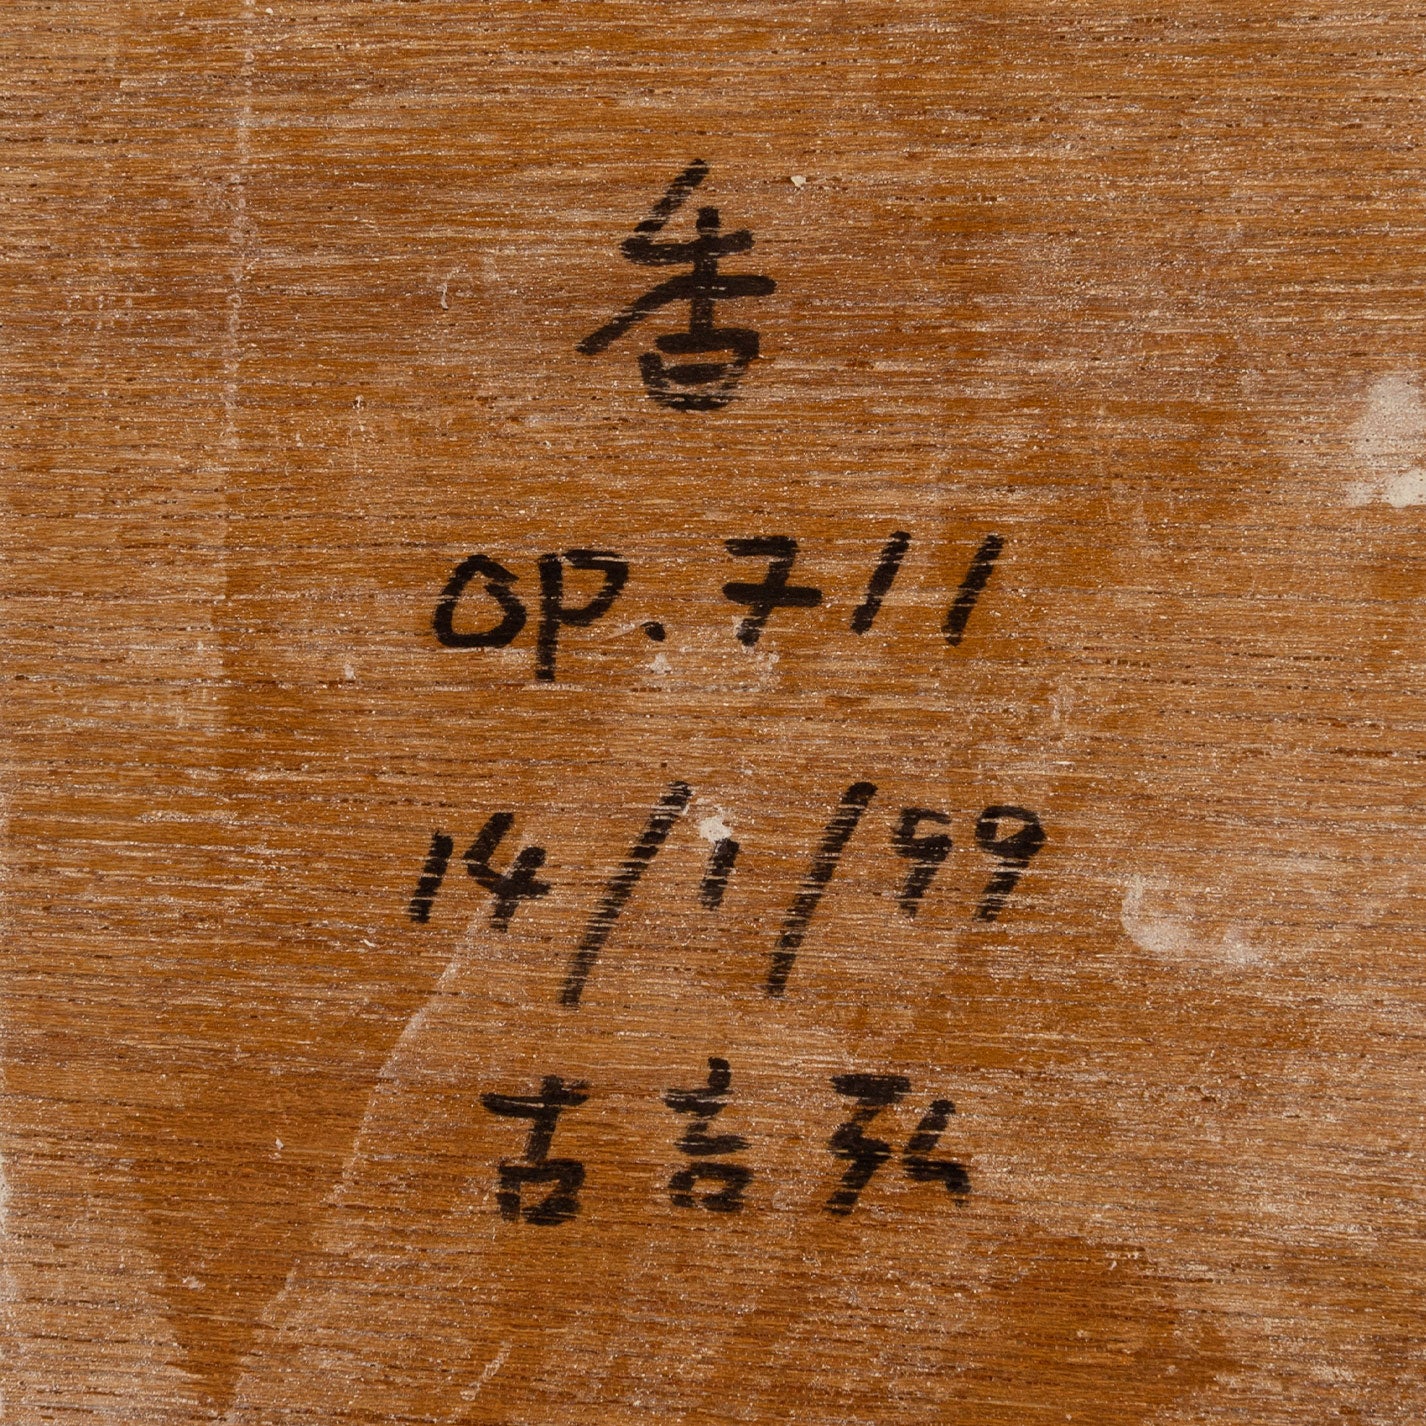 香
op. 711
14/1/99
古吉弘